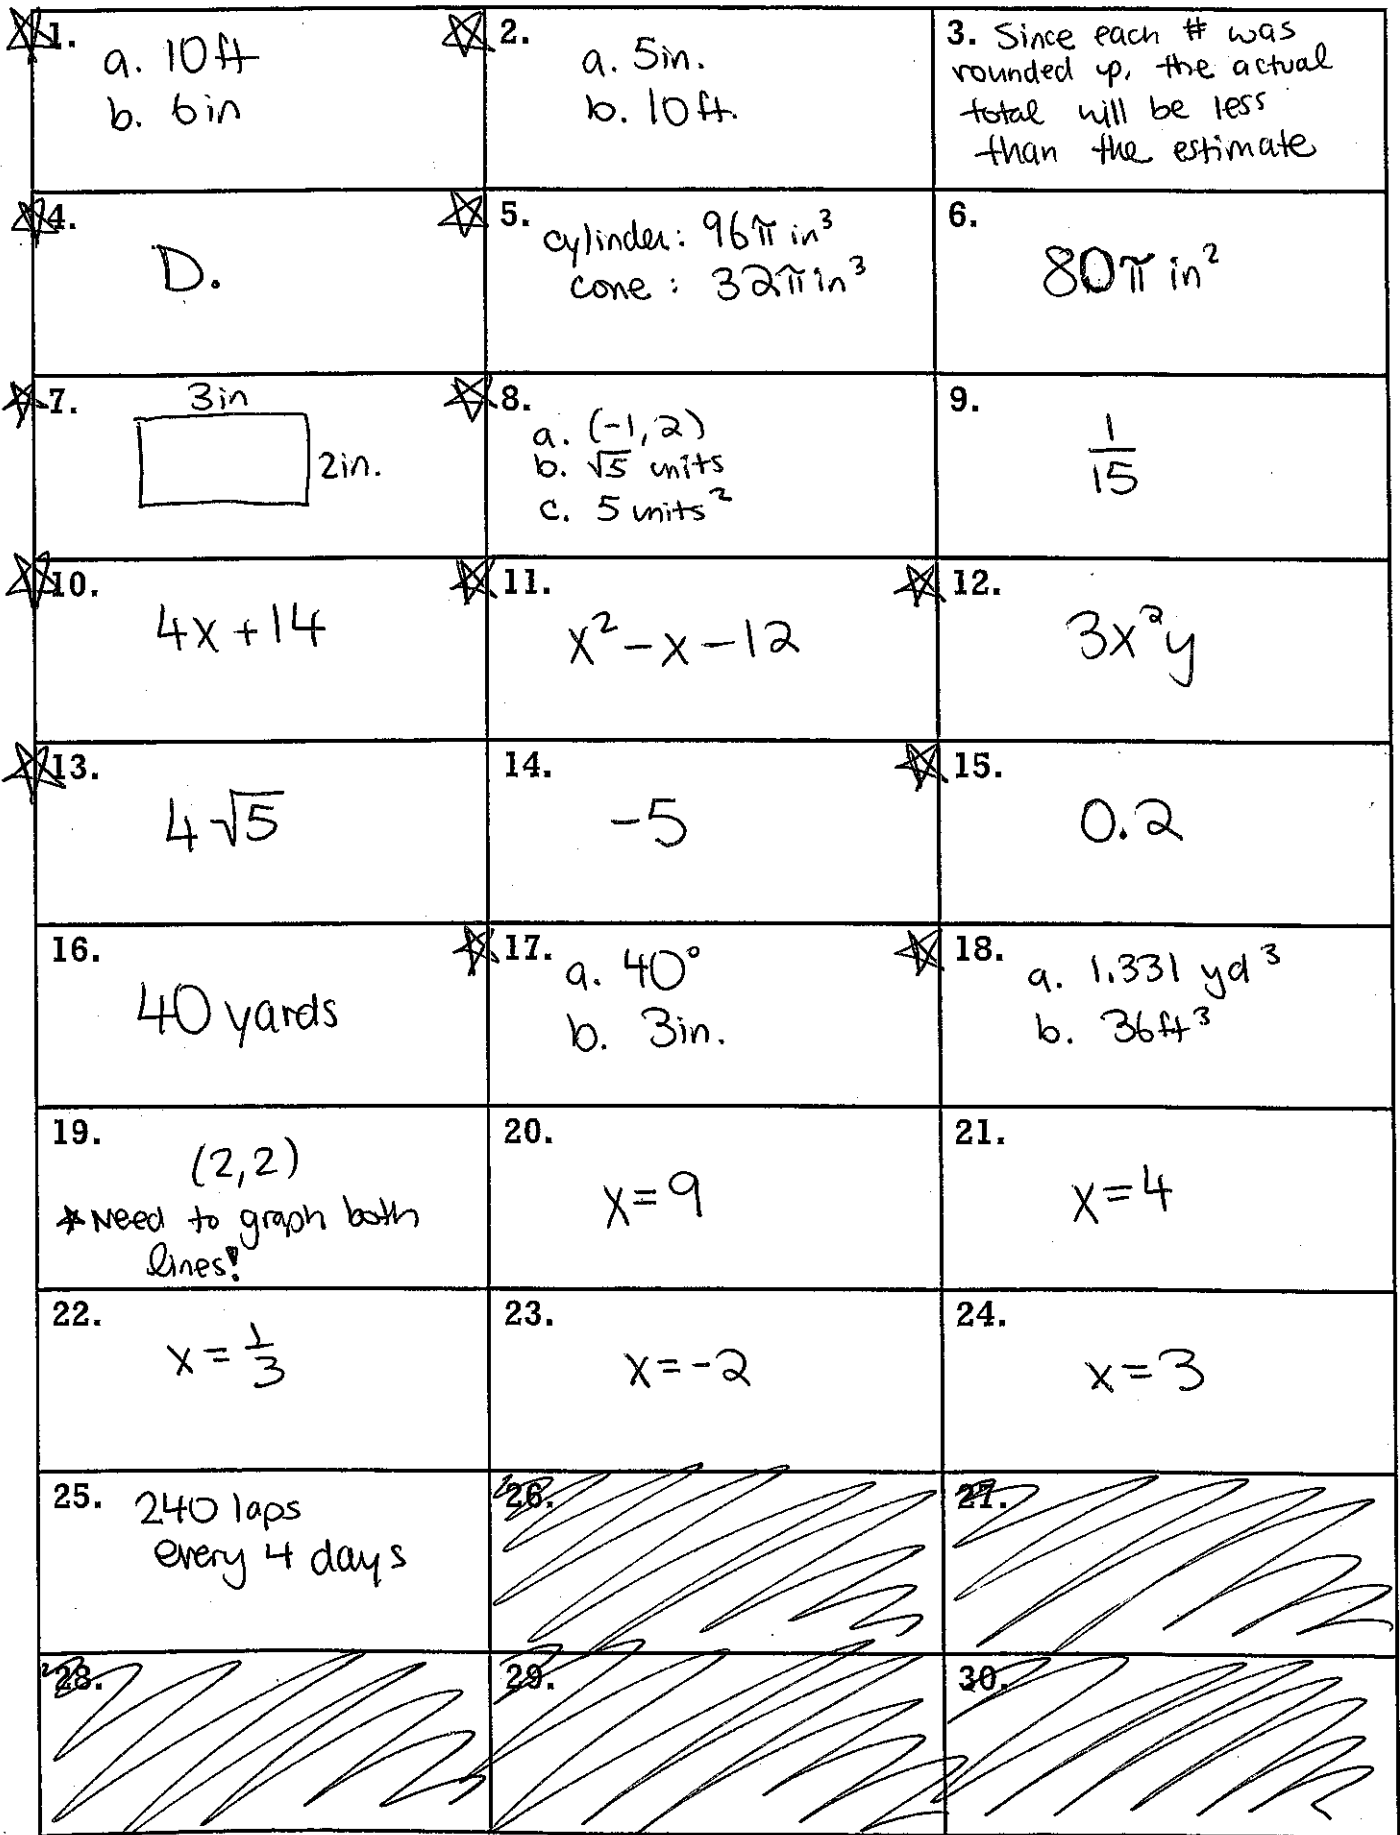 1.
a. 10ft
b. 6in
2.
a. 5in.
b. 10ft.
3. Since each # was
rounded up, the actual
total will be less
than the estimate
4.
D.
5.
cylinder: 96π in³
cone: 32π in³
6.
80π in²
7.
3in
2in.
8.
a. (-1,2)
b. √5 units
c. 5 units²
9.
1/15
10.
4x+14
11.
x²-x-12
12.
3x²y
13.
4√5
14.
-5
15.
0.2
16.
40 yards
17.
a. 40°
b. 3in.
18.
a. 1.331 yd³
b. 36ft³
19.
(2,2)
*Need to graph both
lines!
20.
x=9
21.
x=4
22.
x=1/3
23.
x=-2
24.
x=3
25. 240 laps
every 4 days
26.
27.
28.
29.
30.